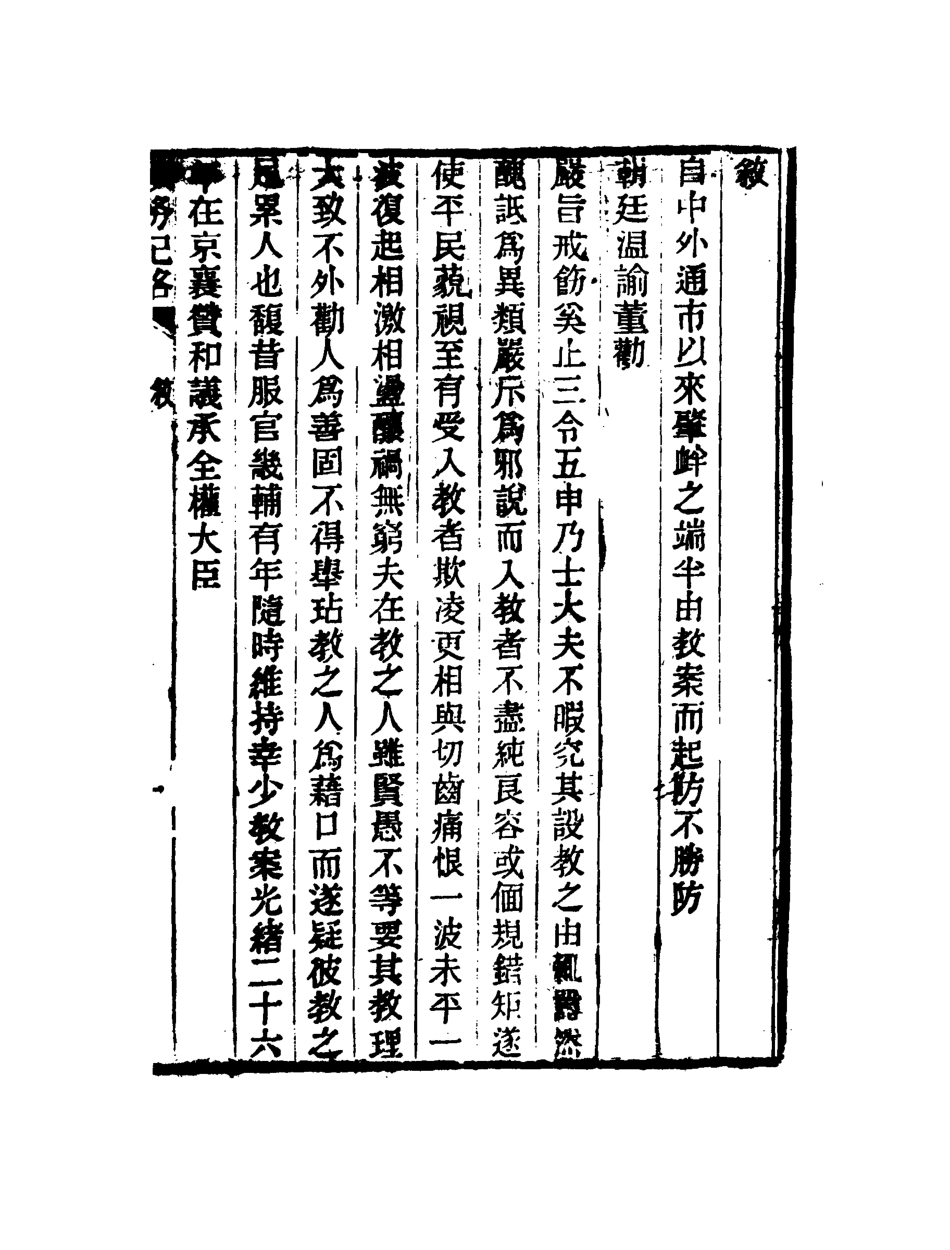 敘
自中外通市以來肇衅之端半由教案而起防不勝防
朝廷温諭董勸
嚴旨戒飭奚止三令五申乃士大夫不暇究其設教之由輒囂然
醜詆爲異類嚴斥爲邪說而入教者不盡純良容或偭規錯矩遂
使平民藐視至有受入教者欺凌更相與切齒痛恨一波未平一
波復起相激相盪釀禍無窮夫在教之人雖賢愚不等要其教理
大致不外勸人爲善固不得舉玷教之人爲藉口而遂疑彼教之
足累人也馥昔服官畿輔有年隨時維持幸少教案光緒二十六
年在京襄贊和議承全權大臣
務紀略 敘